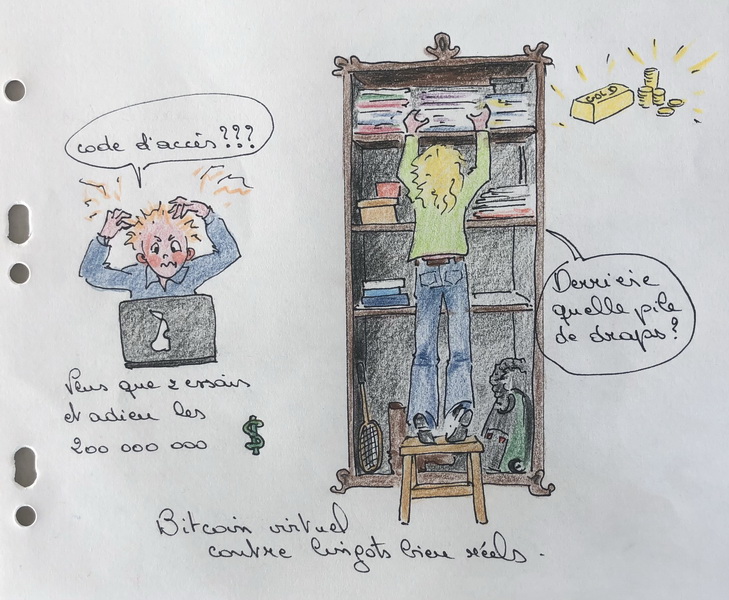 code d'accès???
Plus que 2 essais
et adieu les
200 000 000 $
GOLD
Derrière
quelle pile
de draps?
Bitcoin virtuel
contre lingots bien réels.